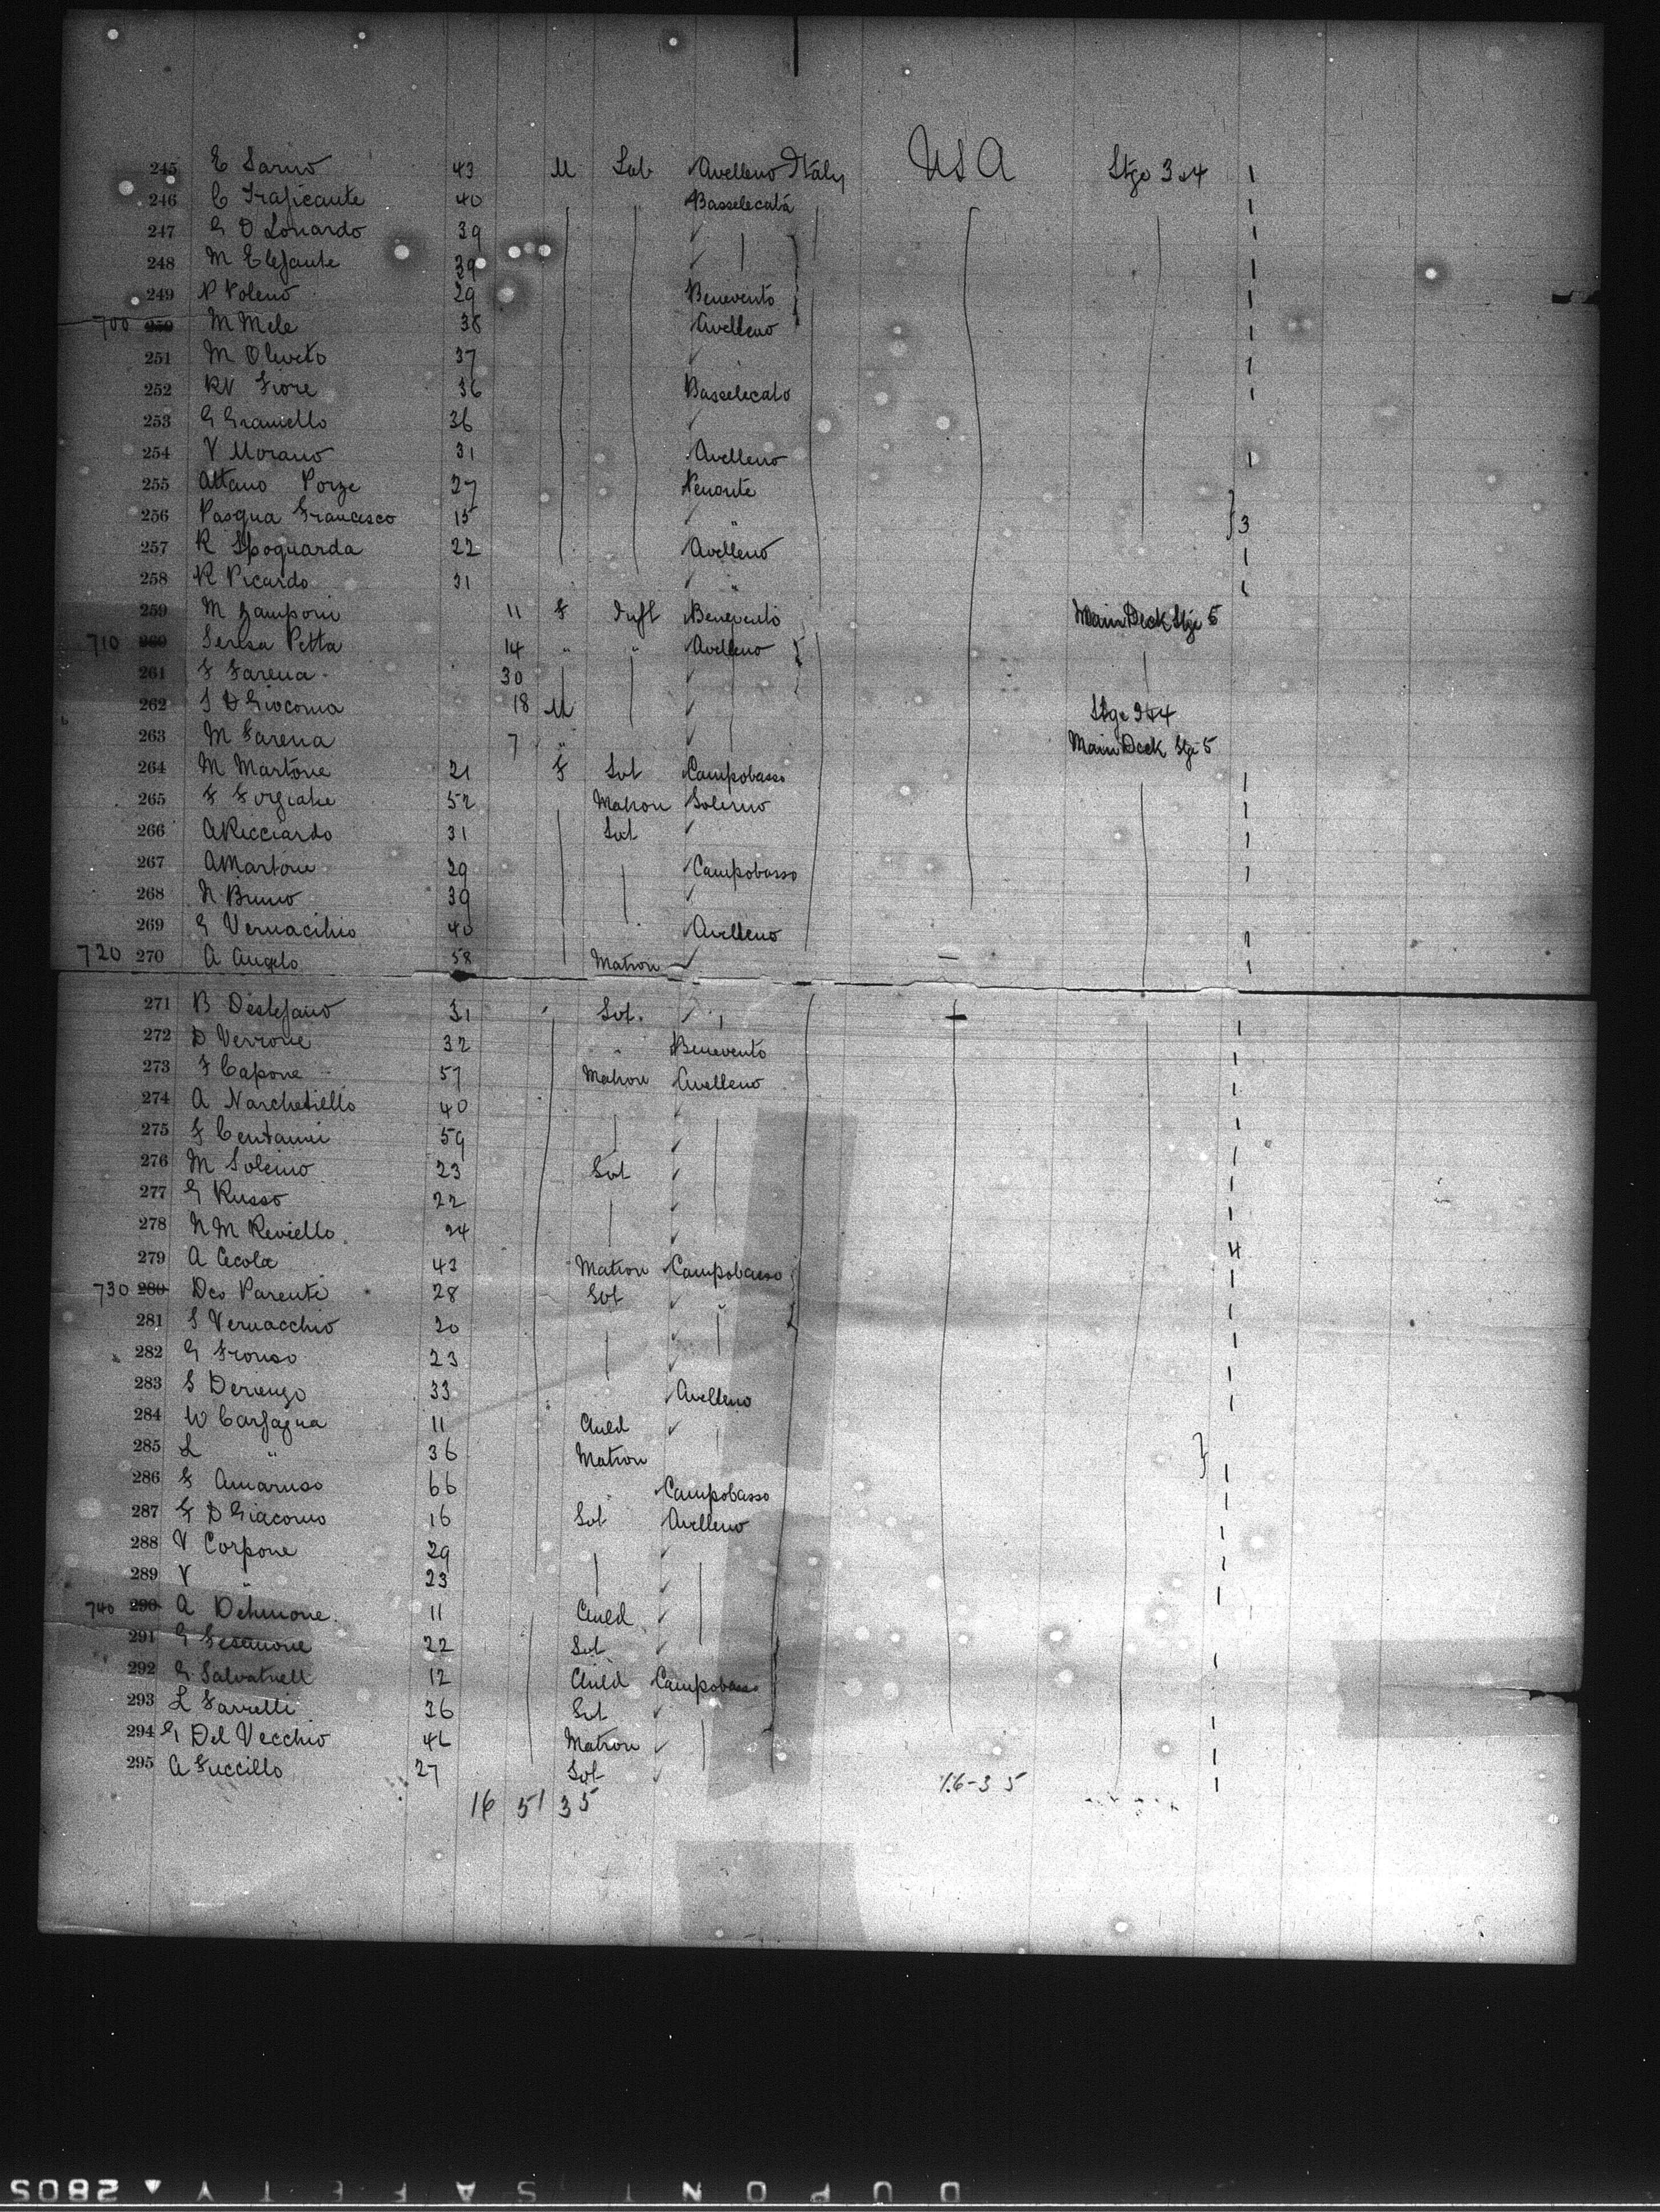 245 E Sarno 43 M Lab Avelleno Italy USA Stge 3&4 1
246 C Traficante 40 " Basselecata 1
247 G D Lonardo 39 ✓ 1
248 M Elefante 39 ✓ 1
249 P Poleno 29 Benevento 1
700 250 M Mele 38 Avelleno 1
251 M Oliveto 37 ✓ 1
252 RV Fiore 36 Basselecato 1
253 G Graniello 36 ✓
254 V Morano 31 Avelleno 1
255 Attano Porze 27
256 Pasqua Francesco 15 ✓ " 3
257 R Spoguarda 22 Avelleno 1
258 R Picardo 31 ✓ " 1
259 M Zamponi 11 F Inft Benevento Main Deck Stge 5
710 260 Teresa Petta 14 " " Avelleno
261 F Farena 30 ✓
262 S D Giacoma 18 M ✓ Stge 3&4
263 M Farena 7 " ✓ Main Deck Stge 5
264 M Martone 21 F Svt Campobasso 1
265 F 52 Matron Solerno 1
266 A Ricciardo 31 Svt ✓ 1
267 A Martone 29 Campobasso 1
268 N Bruno 39 ✓
269 G Vernacihio 40 Avelleno 1
720 270 A Angelo 58 Matron ✓ 1
271 B Destefano 31 Svt. ✓ 1
272 D Verrone 32 " Benevento 1
273 F Capone 57 Matron Avelleno 1
274 A Narchetiello 40 ✓ 1
275 F Centanni 59 ✓ 1
276 M Solemo 23 Svt ✓ 1
277 G Russo 22 ✓ 1
278 N M Reviello 24 ✓ 4
279 A Cecola 43 Matron Campobasso 1
730 280 Dco Parente 28 Svt ✓ " 1
281 S Vernacchio 20 ✓ 1
282 G Fronso 23 ✓ 1
283 S Derienzo 33 Avelleno 1
284 W Carfagna 11 Child ✓
285 L " 36 Matron 1
286 F Amaruso 66 " Campobasso 1
287 F D Giacomo 16 Svt Avelleno 1
288 V Corpone 29 ✓ 1
289 V " 23 1
740 290 A Delmone 11 Child ✓
291 G 22 Svt ✓ 1
292 G Salvatriell 12 Child Campobasso
293 L Farrelli 36 Svt ✓ 1
294 G Del Vecchio 46 Matron ✓ 1
295 A Fuccillo 27 Svt ✓ 1
16 51 35 16-35
DUPONT SAFETY ▲ 2805